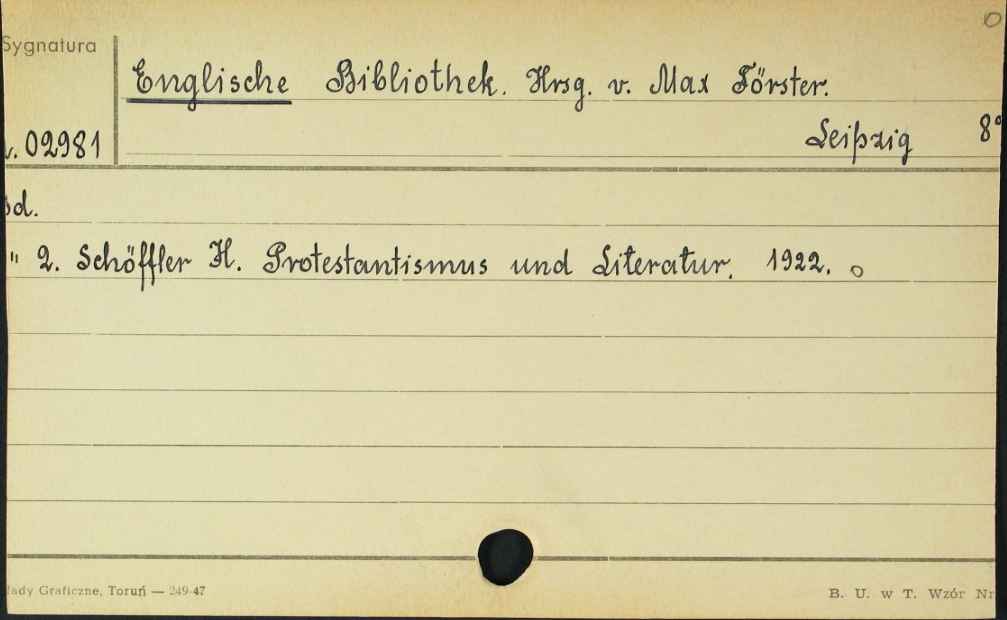 O
Sygnatura
Englische Bibliothek. Hrsg. v. Max Förster.
02981
Leipzig 8°
Bd.
" 2. Schöffler H. Protestantismus und Literatur. 1922. o
łady Graficzne, Toruń — 249-47
B. U. w T. Wzór Nr